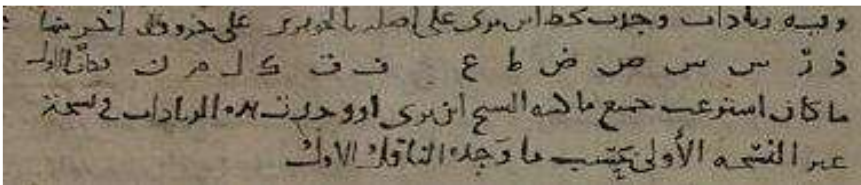 وفيه زيادات وجدت بخط ابن بري على اصله بالجوهري على حروف اخرها
ذ ر س س ص ض ط ع ف ق ك ل م ن وكان اولا
ما كان استوعب جميع ما كتبه الشيخ ابن بري او وجدت هذه الزيادات في نسخة
غير النسخه الأولى يكتب ما وجده الناقل الاول